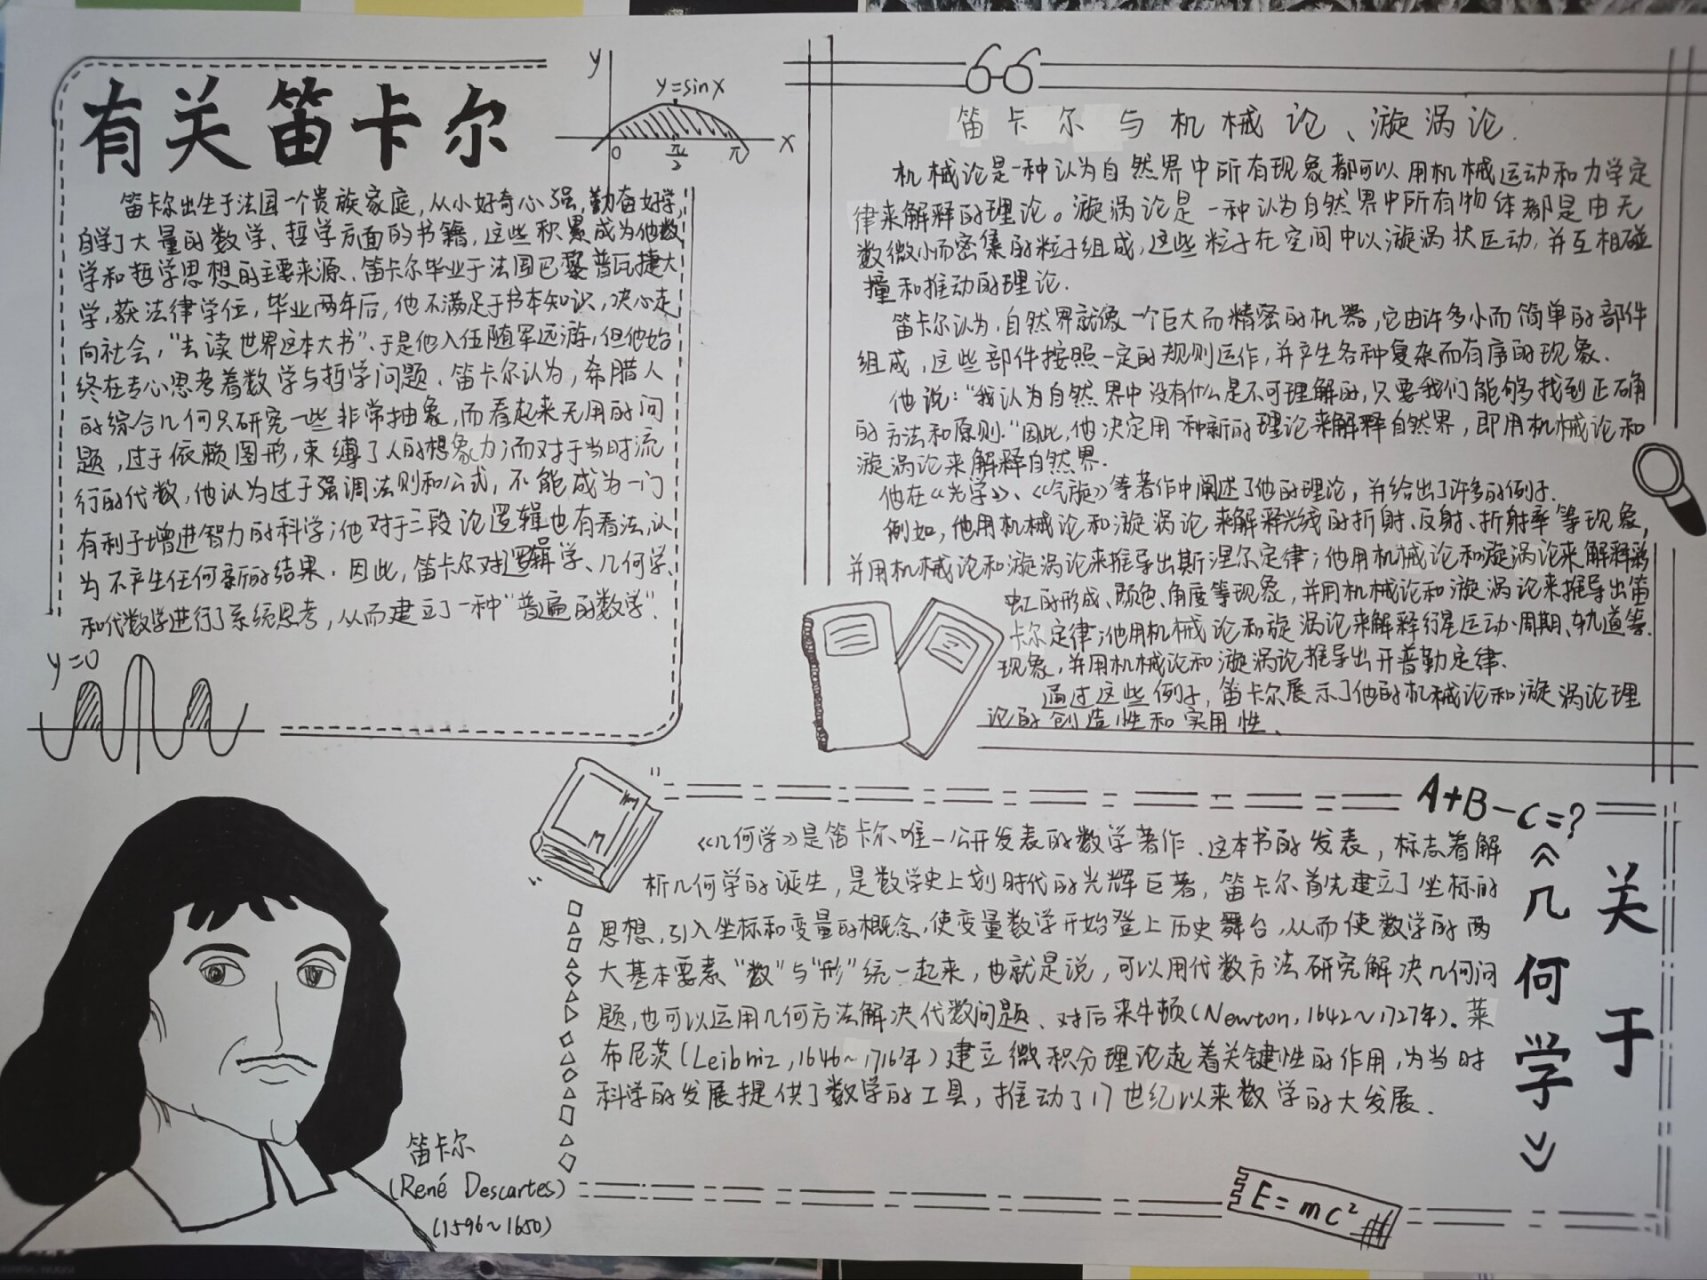 有关笛卡尔
y
y=sinx
0
π/2
π
x
笛卡尔出生于法国一个贵族家庭,从小好奇心强,勤奋好学,
自学了大量的数学、哲学方面的书籍,这些积累成为他数
学和哲学思想的主要来源、笛卡尔毕业于法国巴黎普瓦捷大
学,获法律学位,毕业两年后,他不满足于书本知识,决心走
向社会,“去读世界这本大书”、于是他入伍随军远游,但他始
终在专心思考着数学与哲学问题、笛卡尔认为,希腊人
的综合几何只研究一些非常抽象,而看起来无用的问
题,过于依赖图形,束缚了人的想象力;而对于当时流
行的代数,他认为过于强调法则和公式,不能成为一门
有利于增进智力的科学;他对于三段论逻辑也有看法,认
为不产生任何新的结果.因此,笛卡尔对逻辑学、几何学、
和代数学进行了系统思考,从而建立了一种“普遍的数学”.
y=0
笛卡尔与机械论、漩涡论.
机械论是一种认为自然界中所有现象都可以用机械运动和力学定
律来解释的理论。漩涡论是一种认为自然界中所有物体都是由无
数微小而密集的粒子组成,这些粒子在空间中以漩涡状运动,并互相碰
撞和推动的理论.
笛卡尔认为,自然界就像一个巨大而精密的机器,它由许多小而简单的部件
组成,这些部件按照一定的规则运作,并产生各种复杂而有序的现象.
他说:“我认为自然界中没有什么是不可理解的,只要我们能够找到正确
的方法和原则.”因此,他决定用一种新的理论来解释自然界,即用机械论和
漩涡论来解释自然界.
他在《光学》、《气旋》等著作中阐述了他的理论,并给出了许多的例子.
例如,他用机械论和漩涡论来解释光线的折射、反射、折射率等现象,
并用机械论和漩涡论来推导出斯涅尔定律;他用机械论和漩涡论来解释彩
虹的形成、颜色、角度等现象,并用机械论和漩涡论来推导出笛
卡尔定律;他用机械论和旋涡论来解释行星运动、周期、轨道等
现象,并用机械论和漩涡论推导出开普勒定律.
通过这些例子,笛卡尔展示了他的机械论和漩涡论理
论的创造性和实用性、
A+B-C=?
关于
《几何学》
《几何学》是笛卡尔唯一公开发表的数学著作、这本书的发表,标志着解
析几何学的诞生,是数学史上划时代的光辉巨著,笛卡尔首先建立了坐标的
思想,引入坐标和变量的概念,使变量数学开始登上历史舞台,从而使数学的两
大基本要素“数”与“形”统一起来,也就是说,可以用代数方法研究解决几何问
题,也可以运用几何方法解决代数问题、对后来牛顿(Newton,1642~1727年)、莱
布尼茨(Leibniz,1646~1716年)建立微积分理论起着关键性的作用,为当时
科学的发展提供了数学的工具,推动了17世纪以来数学的大发展.
笛卡尔
(René Descartes)
(1596~1650)
E=mc²